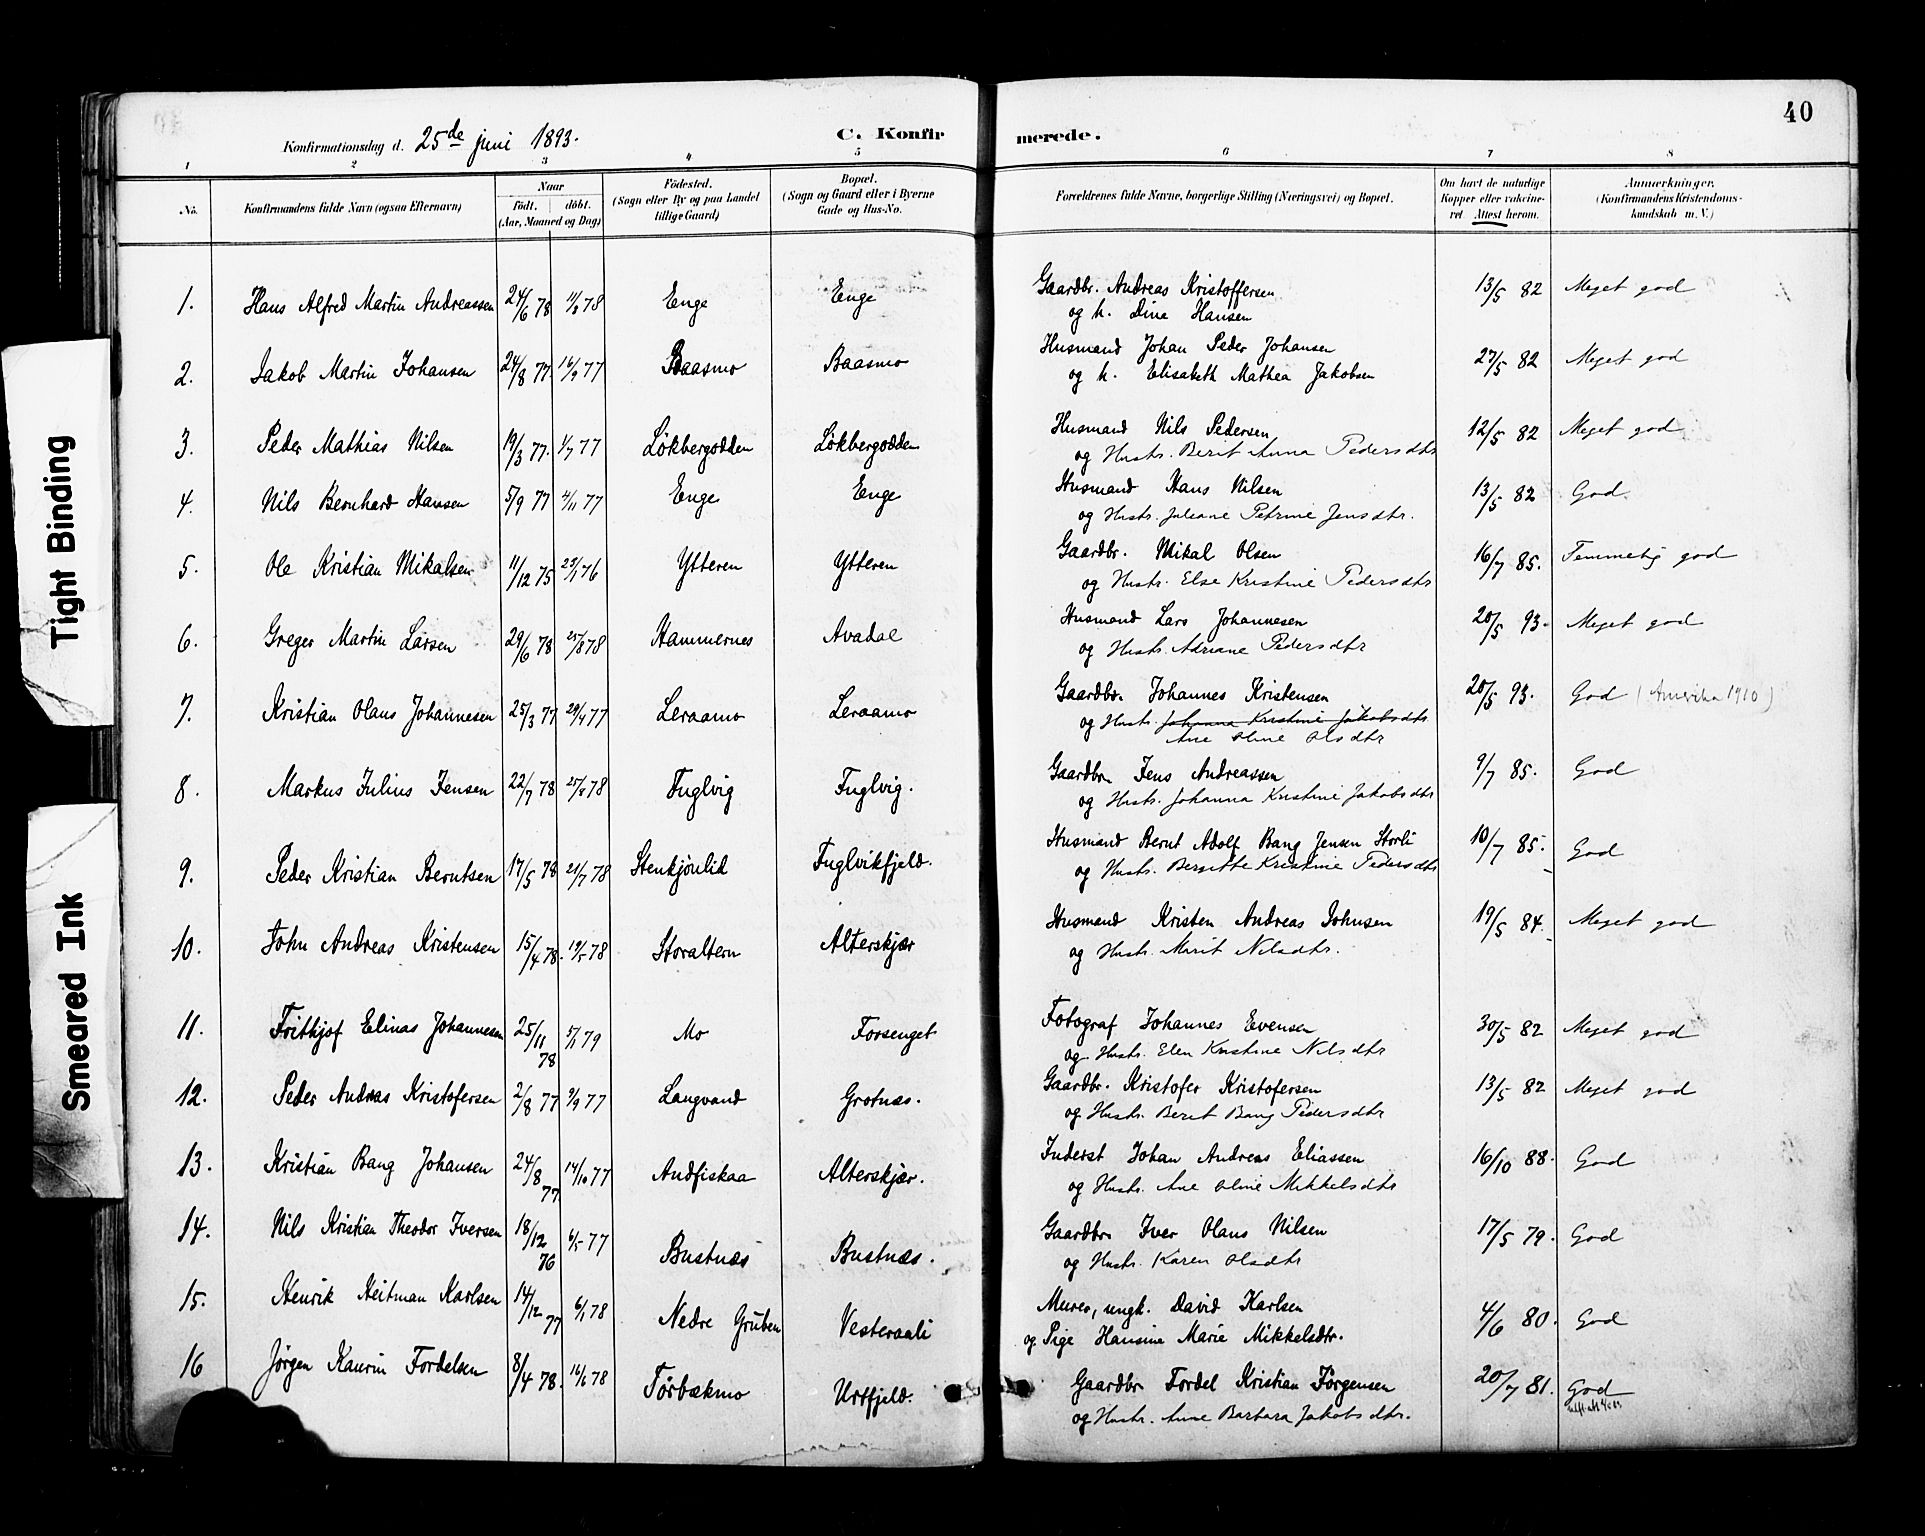 40
Konfirmationsdag d. 25de juni 1893.
C. Konfirmerede.
1 2 3 4 5 6 7 8
No.
Konfirmandens fulde Navn (ogsaa Efternavn)
Naar
födt. döbt.
(Aar, Maaned og Dag)
Födested.
(Sogn eller By og paa Landet
tillige Gaard)
Bopæl.
(Sogn og Gaard eller i Byerne
Gade og Hus-No.
Forældrenes fulde Navne, borgerlige Stilling (Næringsvei) og Bopæl.
Om havt de naturlige
Kopper eller vakcine-
ret. Attest herom.
Anmærkninger.
(Konfirmandens Kristendoms-
kundskab m. V.)
1. Hans Alfred Martin Andreassen 24/6 78 11/8 78 Enge Enge Gaardbr. Andreas Kristoffersen 13/5 82 Meget god
og h. Dina Hansen
2. Jakob Martin Johansen 24/8 77. 16/9 77 Baasmo Baasmo Husmand Johan Peder Johansen 27/5 82 Meget god
og h. Elisabeth Mathea Jakobsen
3. Peder Mathias Nilsen 19/3 77. 1/7 77 Lökbergodden Lökbergodden Husmand Nils Pedersen 12/5 82 Meget god
og Hustr. Berit Anna Pedersdtr
4. Nils Bernhard Hansen 5/9 77 4/11 77 Enge Enge Husmand Hans Nilsen 13/5 82 God.
og Hustr. Juliane Petrine Jensdtr.
5. Ole Kristian Mikalsen 11/12 75 23/1 76 Ytteren Ytteren Gaardbr. Mikal Olsen 16/7 85. Temmelig god
og Hustr. Else Kristine Pedersdtr
6. Greger Martin Larsen 29/6 78 25/8 78 Hammernes Avadal Husmand Lars Johannesen 20/5 93. Meget god
og Hustr. Adriane Pedersdtr
7. Kristian Olaus Johannesen 25/3 77 29/4 77 Leraamo Leraamo Gaardbr. Johannes Kristensen 20/5 93. God (Amerika 1910)
og Hustr. Johanna Kristine Jakobsdtr
Ane Oline Olsdtr
8. Markus Julius Jensen 22/7 78 25/8 78 Fuglvig Fuglvig. Gaardbr. Jens Andreassen 9/7 85. God
og Hustr. Johanna Kristine Jakobsdtr
9. Peder Kristian Berntsen 17/5 78 21/7 78 Stenkjönlid Fuglvikfjeld. Husmand Bernt Adolf Bang Jensen Storli 10/7 85. God
og Hustr. Bergitte Kristine Pedersdtr
10. John Andreas Kristensen 15/4 78. 19/5 78 Storaltern Alterskjær Husmand Kristen Andreas Johnsen 19/5 84. Meget god
og Hustr. Marit Nilsdtr.
11. Frithjof Elinas Johannesen 25/11 78 5/1 79 Mo Forsenget Fotograf Johannes Evensen 30/5 82 Meget god
og Hustr. Elen Kristine Nilsdtr
12. Peder Andreas Kristofersen 2/8 77 9/9 77 Langvand Grotnæs. Gaardbr. Kristofer Kristofersen 13/5 82 Meget god
og Hustr. Berit Bang Pedersdtr
13. Kristian Bang Johansen 24/8 77 14/10 77 Andfiskaa Alterskjær. Inderst Johan Andreas Eliassen 16/10 88. God
og Hustr. Ane Oline Mikkelsdtr
14. Nils Kristian Theodor Iversen 18/12 76 6/5 77 Bustnæs Bustnæs. Gaardbr. Iver Olaus Nilsen 17/5 79. God
og Hustr. Karen Olsdtr
15. Henrik Heitman Karlsen 14/12 77 6/1 78 Nedre Gruben Vesteraali Murer, ungk. David Karlsen 4/6 80. God
og Pige Hansine Marie Mikkelsdtr.
16 Jörgen Kaurin Fordelsen 8/4 78. 16/6 78 Törbækmo Urtfjeld. Gaardbr. Fordel Kristian Jörgensen 20/7 81. God
og Hustr. Anne Barbara Jakobsdtr.
Tight Binding
Smeared Ink